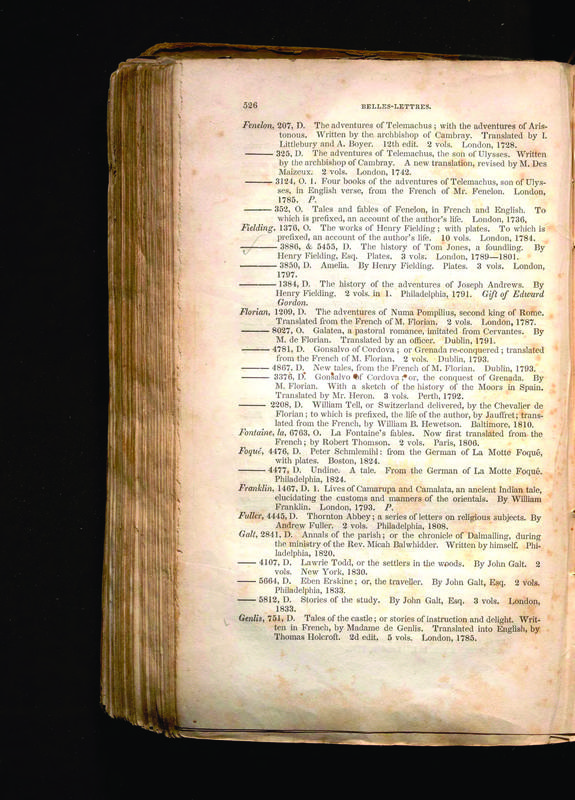 526 BELLES-LETTRES.
Fenelon, 207, D. The adventures of Telemachus; with the adventures of Aris-
tonous. Written by the archbishop of Cambray. Translated by I.
Littlebury and A. Boyer. 12th edit. 2 vols. London, 1728.
——— 325, D. The adventures of Telemachus, the son of Ulysses. Written
by the archbishop of Cambray. A new translation, revised by M. Des
Maizeux. 2 vols. London, 1742.
——— 3124, O. 1. Four books of the adventures of Telemachus, son of Ulys-
ses, in English verse, from the French of Mr. Fenelon. London,
1785. P.
——— 352, O. Tales and fables of Fenelon, in French and English. To
which is prefixed, an account of the author's life. London, 1736,
Fielding, 1376, O. The works of Henry Fielding; with plates. To which is
prefixed, an account of the author's life. 10 vols. London, 1784.
——— 3886, & 5455, D. The history of Tom Jones, a foundling. By
Henry Fielding, Esq. Plates. 3 vols. London, 1789—1801.
——— 3850, D. Amelia. By Henry Fielding. Plates. 3 vols. London,
1797.
——— 1384, D. The history of the adventures of Joseph Andrews. By
Henry Fielding. 2 vols. in 1. Philadelphia, 1791. Gift of Edward
Gordon.
Florian, 1209, D. The adventures of Numa Pompilius, second king of Rome.
Translated from the French of M. Florian. 2 vols. London, 1787.
——— 8027, O. Galatea, a pastoral romance, imitated from Cervantes. By
M. de Florian. Translated by an officer. Dublin, 1791.
——— 4781, D. Gonsalvo of Cordova; or Grenada re-conquered; translated
from the French of M. Florian. 2 vols. Dublin, 1793.
——— 4867, D. New tales, from the French of M. Florian. Dublin, 1793.
——— 3376, D. Gonsalvo of Cordova; or, the conquest of Grenada. By
M. Florian. With a sketch of the history of the Moors in Spain.
Translated by Mr. Heron. 3 vols. Perth, 1792.
——— 2208, D. William Tell, or Switzerland delivered, by the Chevalier de
Florian; to which is prefixed, the life of the author, by Jauffret; trans-
lated from the French, by William B. Hewetson. Baltimore, 1810.
Fontaine, la, 6763, O. La Fontaine's fables. Now first translated from the
French; by Robert Thomson. 2 vols. Paris, 1806.
Foqué, 4476, D. Peter Schmlemihl: from the German of La Motte Foqué,
with plates. Boston, 1824.
——— 4477, D. Undine. A tale. From the German of La Motte Foqué.
Philadelphia, 1824.
Franklin, 1467, D. 1. Lives of Camarupa and Camalata, an ancient Indian tale,
elucidating the customs and manners of the orientals. By William
Franklin. London, 1793. P.
Fuller, 4445, D. Thornton Abbey; a series of letters on religious subjects. By
Andrew Fuller. 2 vols. Philadelphia, 1808.
Galt, 2841, D. Annals of the parish; or the chronicle of Dalmailing, during
the ministry of the Rev. Micah Balwhidder. Written by himself. Phi-
ladelphia, 1820.
—— 4107, D. Lawrie Todd, or the settlers in the woods. By John Galt. 2
vols. New York, 1830.
—— 5664, D. Eben Erskine; or, the traveller. By John Galt, Esq. 2 vols.
Philadelphia, 1833.
—— 5812, D. Stories of the study. By John Galt, Esq. 3 vols. London,
1833.
Genlis, 751, D. Tales of the castle; or stories of instruction and delight. Writ-
ten in French, by Madame de Genlis. Translated into English, by
Thomas Holcroft. 2d edit. 5 vols. London, 1785.